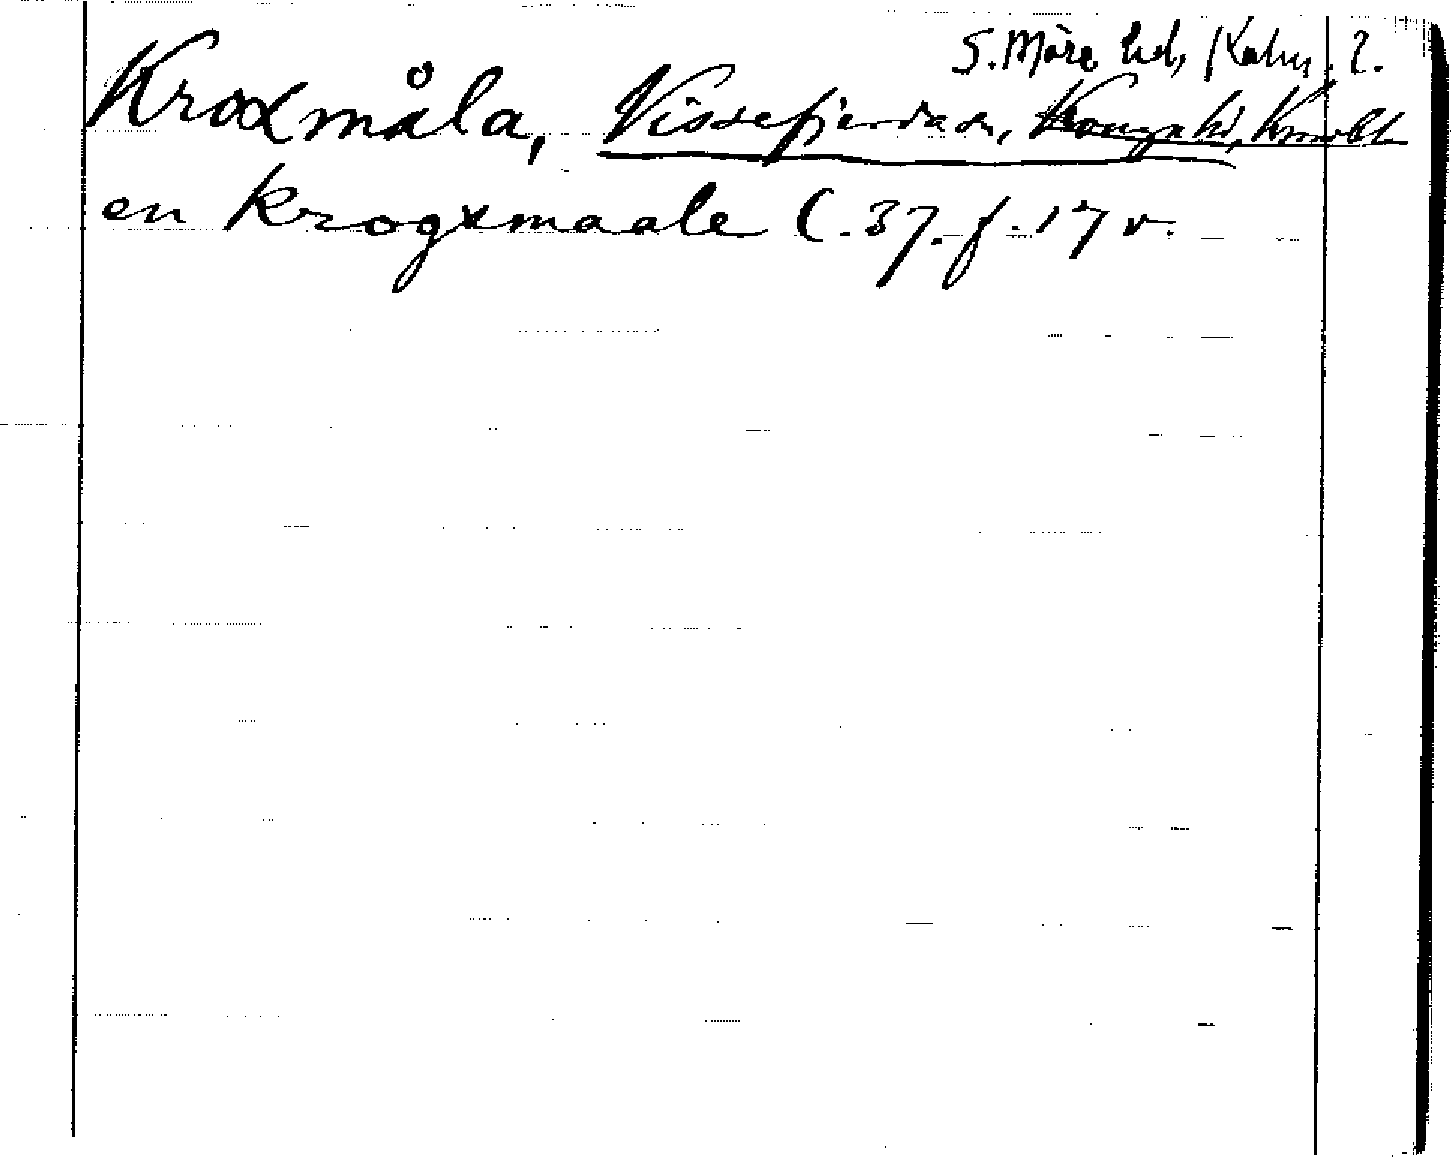 S. Möre hd, Kalm. l.
Kroxmåla, Vissefjerda sn,
en krogxmaale C. 37. f. 17 v.